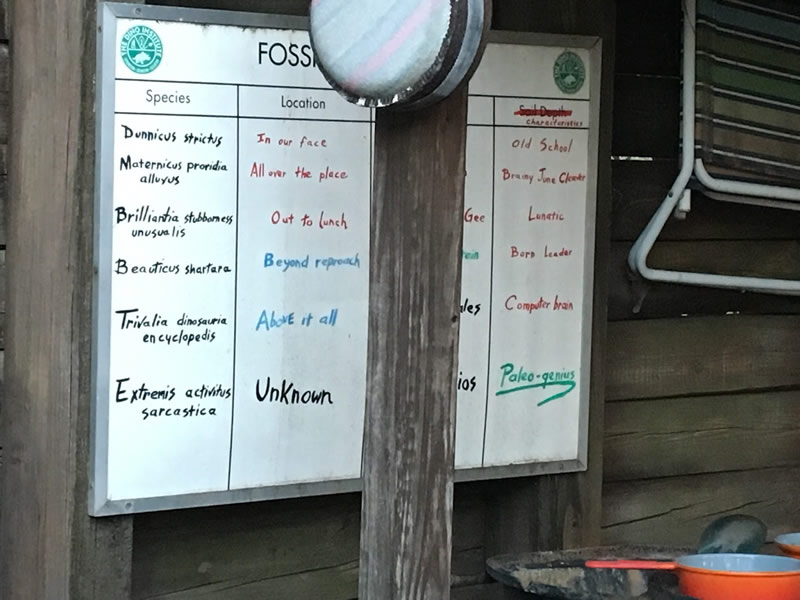 THE DINO INSTITUTE
FOSSI
Species Location Soil Depth
Characteristics
Dunnicus strictus In our face Old School
Maternicus providia All over the place Brainy June Cleaver
alluvus
Brilliantia stubborness Out to lunch Gee Lunatic
unusualis
Beauticus shartara Beyond reproach Born Leader
Trivalia dinosauria Above it all les Computer brain
encyclopedis
Extremis activitus Unknown ios Paleo-genius
sarcastica